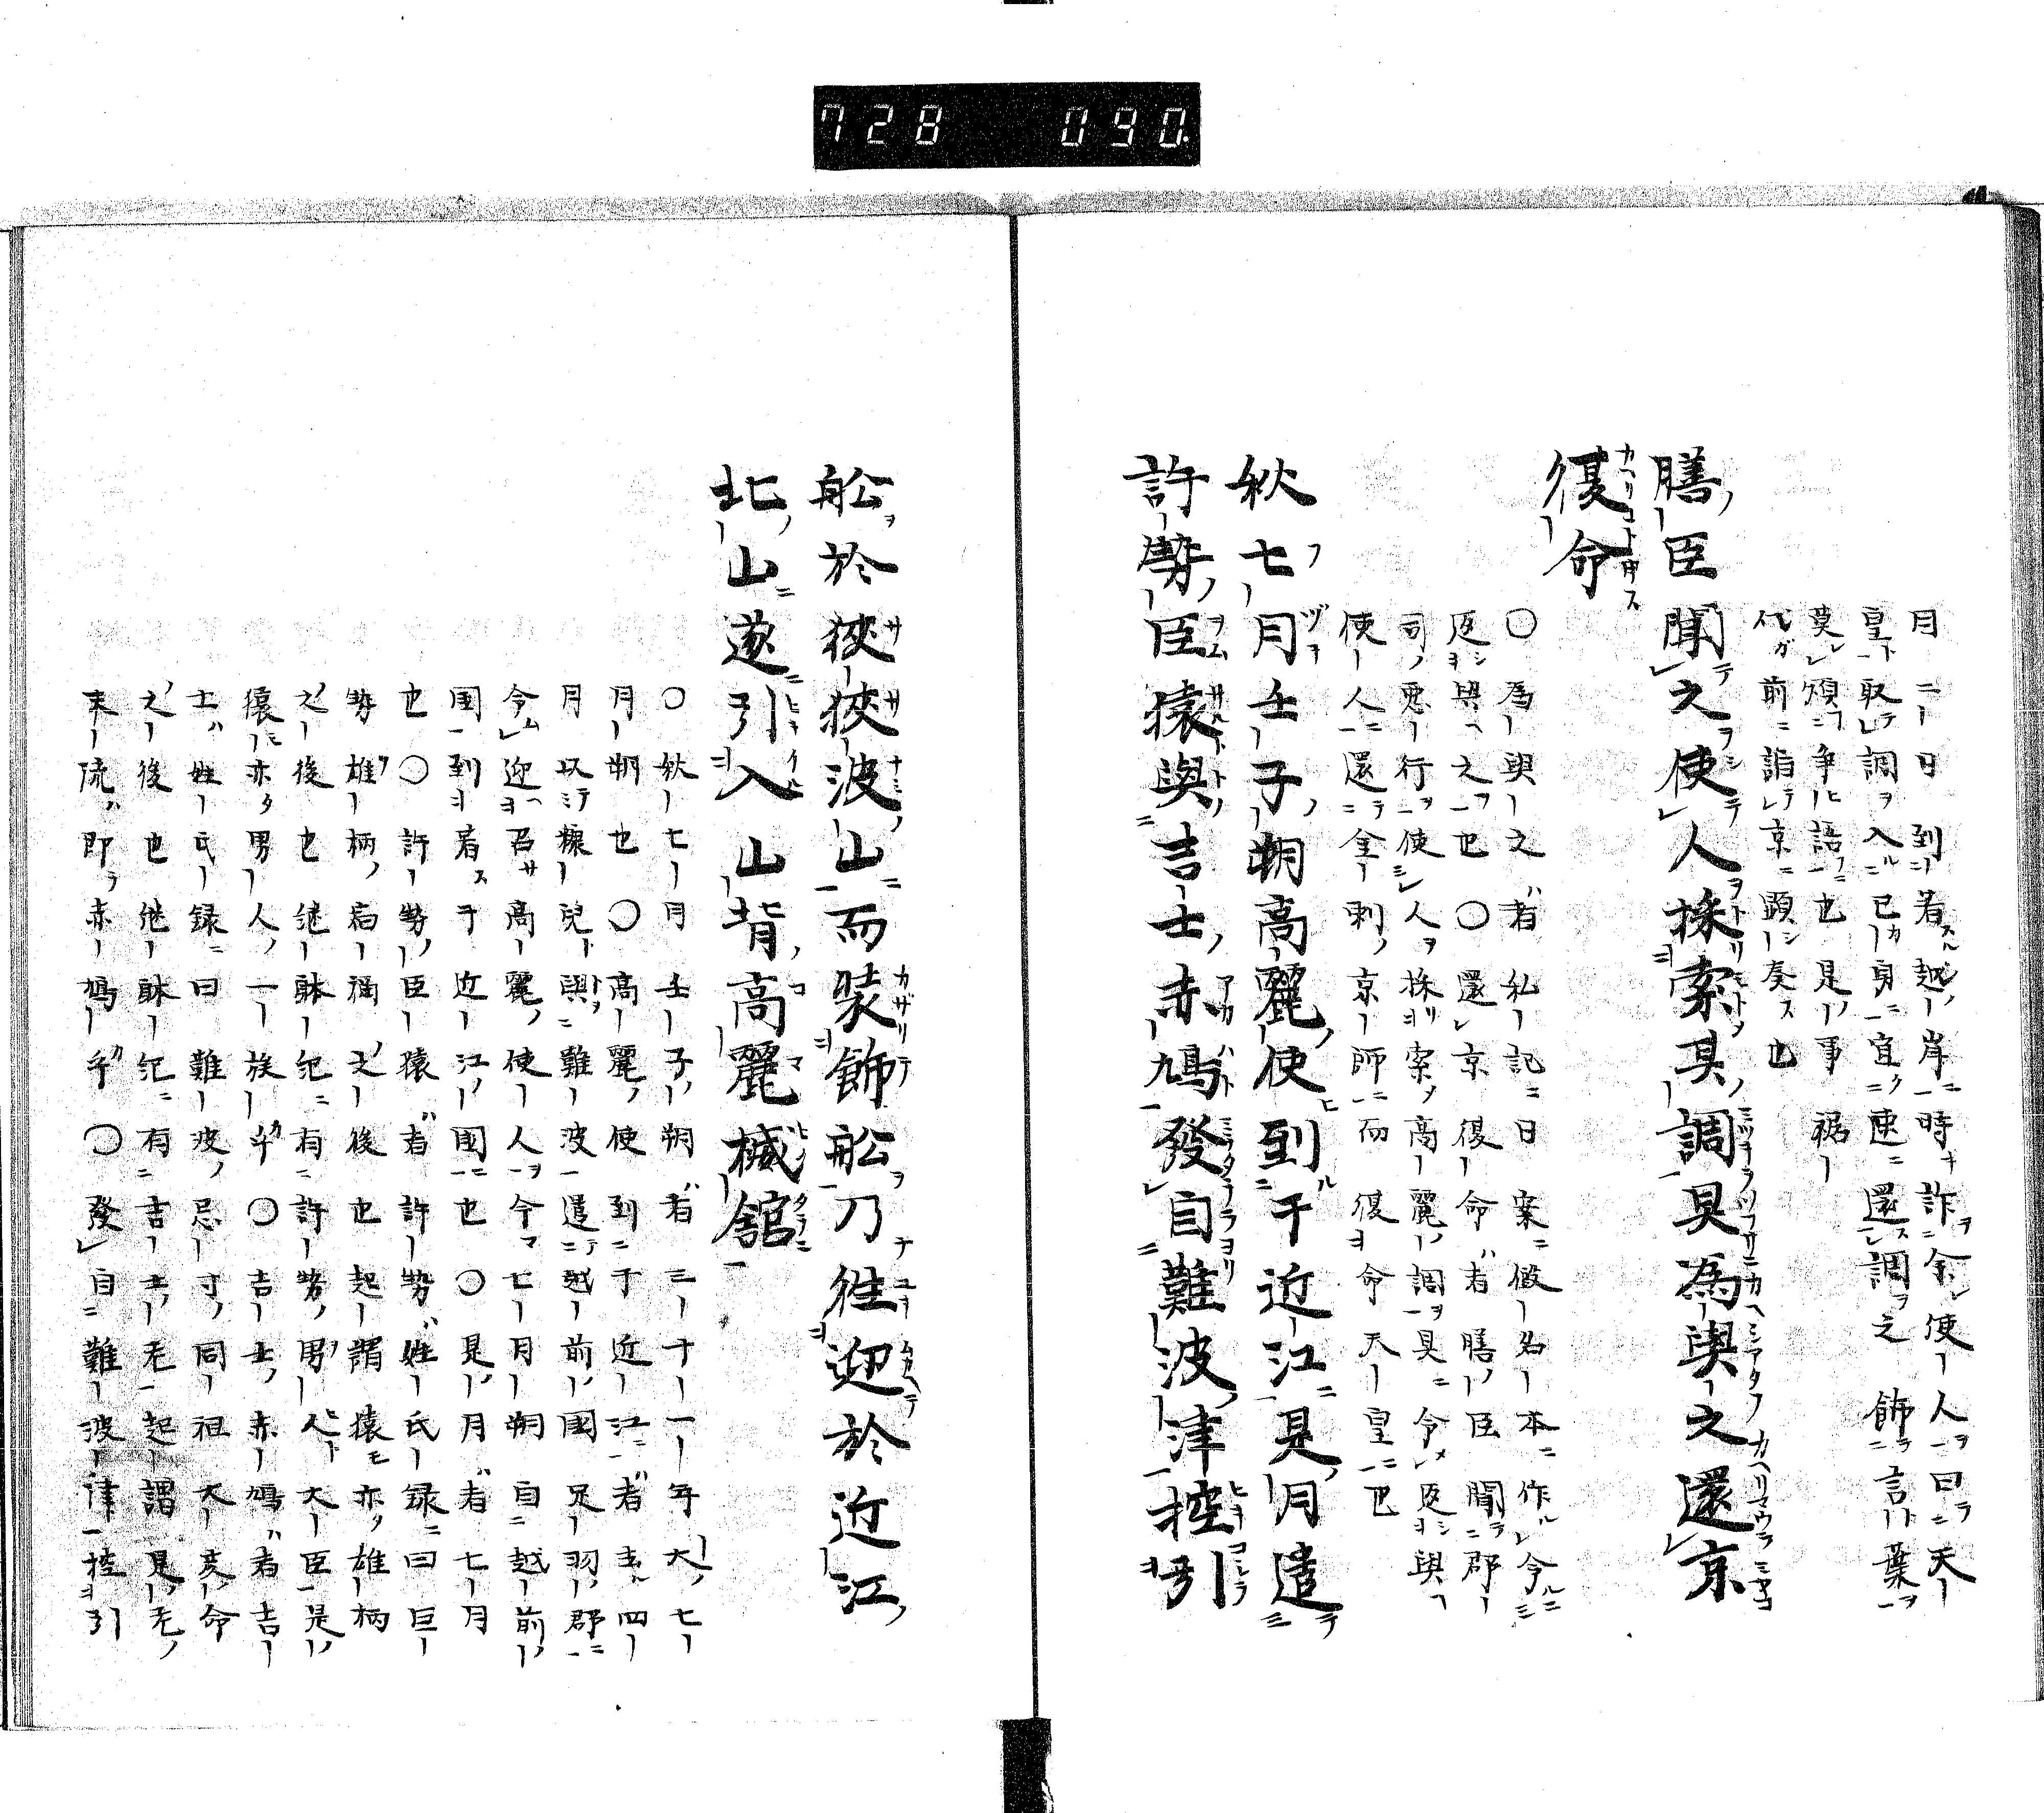 728 090
月二日到着越岸時詐余使人曰天
皇取調入已身宜速還調之飾言葉
莫煩争語也是事裾
代前詣京顕奏也
膳臣聞之使人採索具調具為與之還京
復命
〇為與之者私記曰案假名本作令
返與之也〇還京復命者膳臣聞郡
司悪行使人採索高麗調具令返與
使人還奎刺京師而復命天皇也
秋七月壬子朔高麗使到于近江是月遣
許勢臣猿與吉士赤鳩發自難波津控引
舩於狹狹波山而装飾舩乃徃迎於近江
北山遂引入山背高麗楲舘
〇秋七月壬子朔者三十一年大七
月朔也〇高麗使到于近江者去四
月以糠兒與難波遣越前國足羽郡
令迎召高麗使人今七月朔自越前
国到着于近江國也〇是月者七月
也〇許勢臣猿者許勢姓氏録曰巨
勢雄柄宿禰之後也起謂猿亦雄柄
之後也継躰紀有許勢男人大臣是
猿亦男人一族乎〇吉士赤鳩者吉
士姓氏録曰難波忌寸同祖大彦命
之後也継躰紀有吉士老起謂是老
末流即赤鳩乎〇發自難波津控引